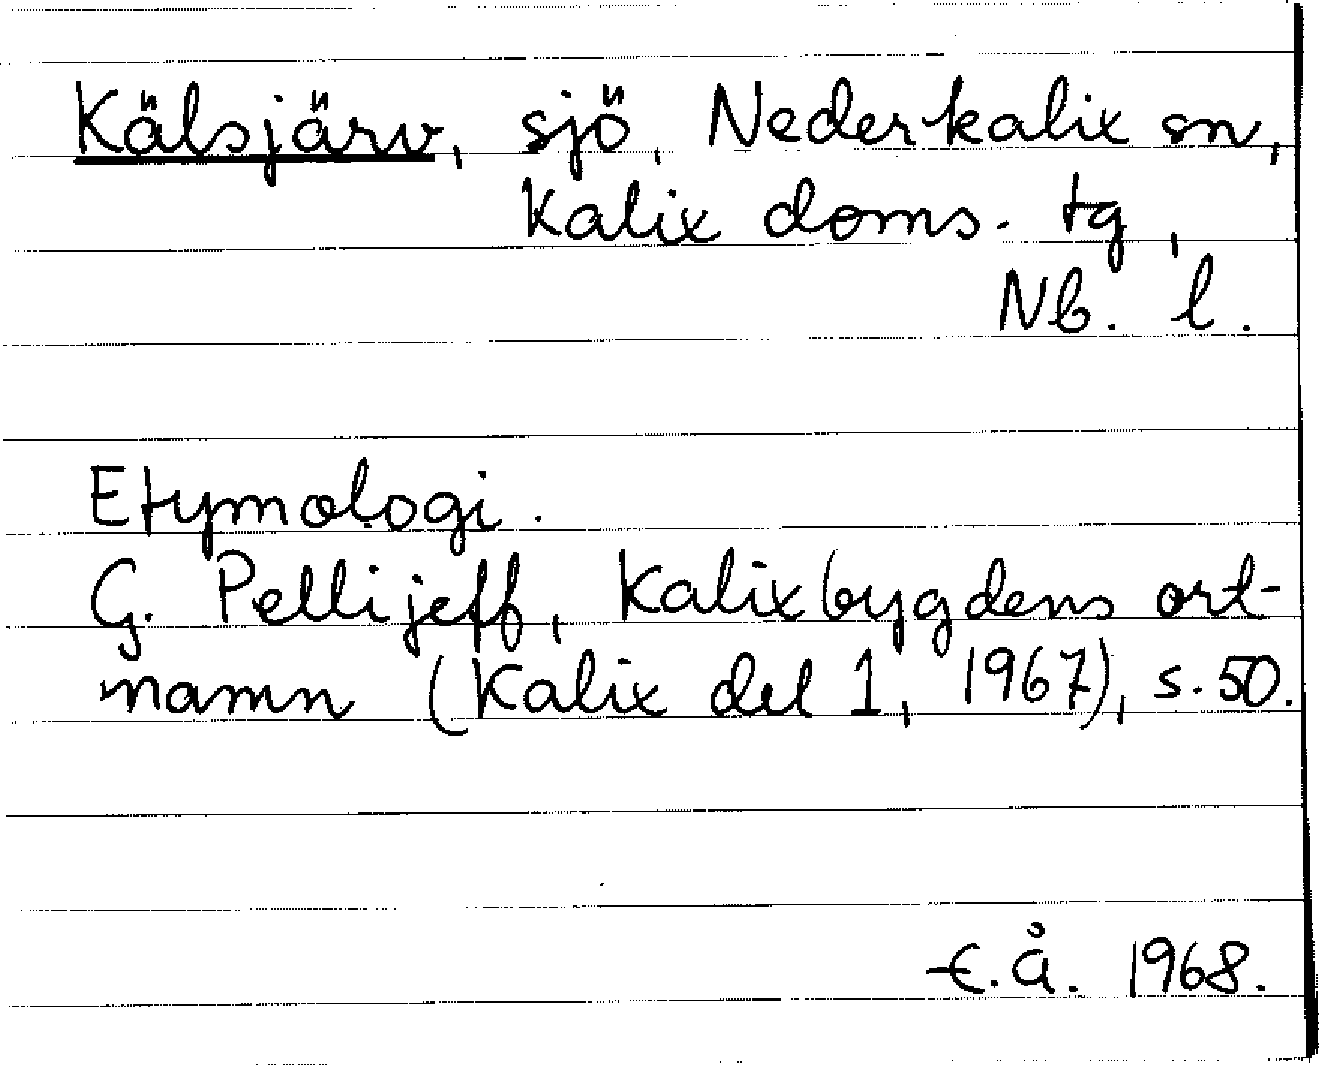 Kälsjärv, sjö, Nederkalix sn,
Kalix doms. tg,
Nb. l.
Etymologi.
G. Pellijeff, Kalixbygdens ort-
namn (Kalix del 1, 1967), s. 50.
E.Å. 1968.